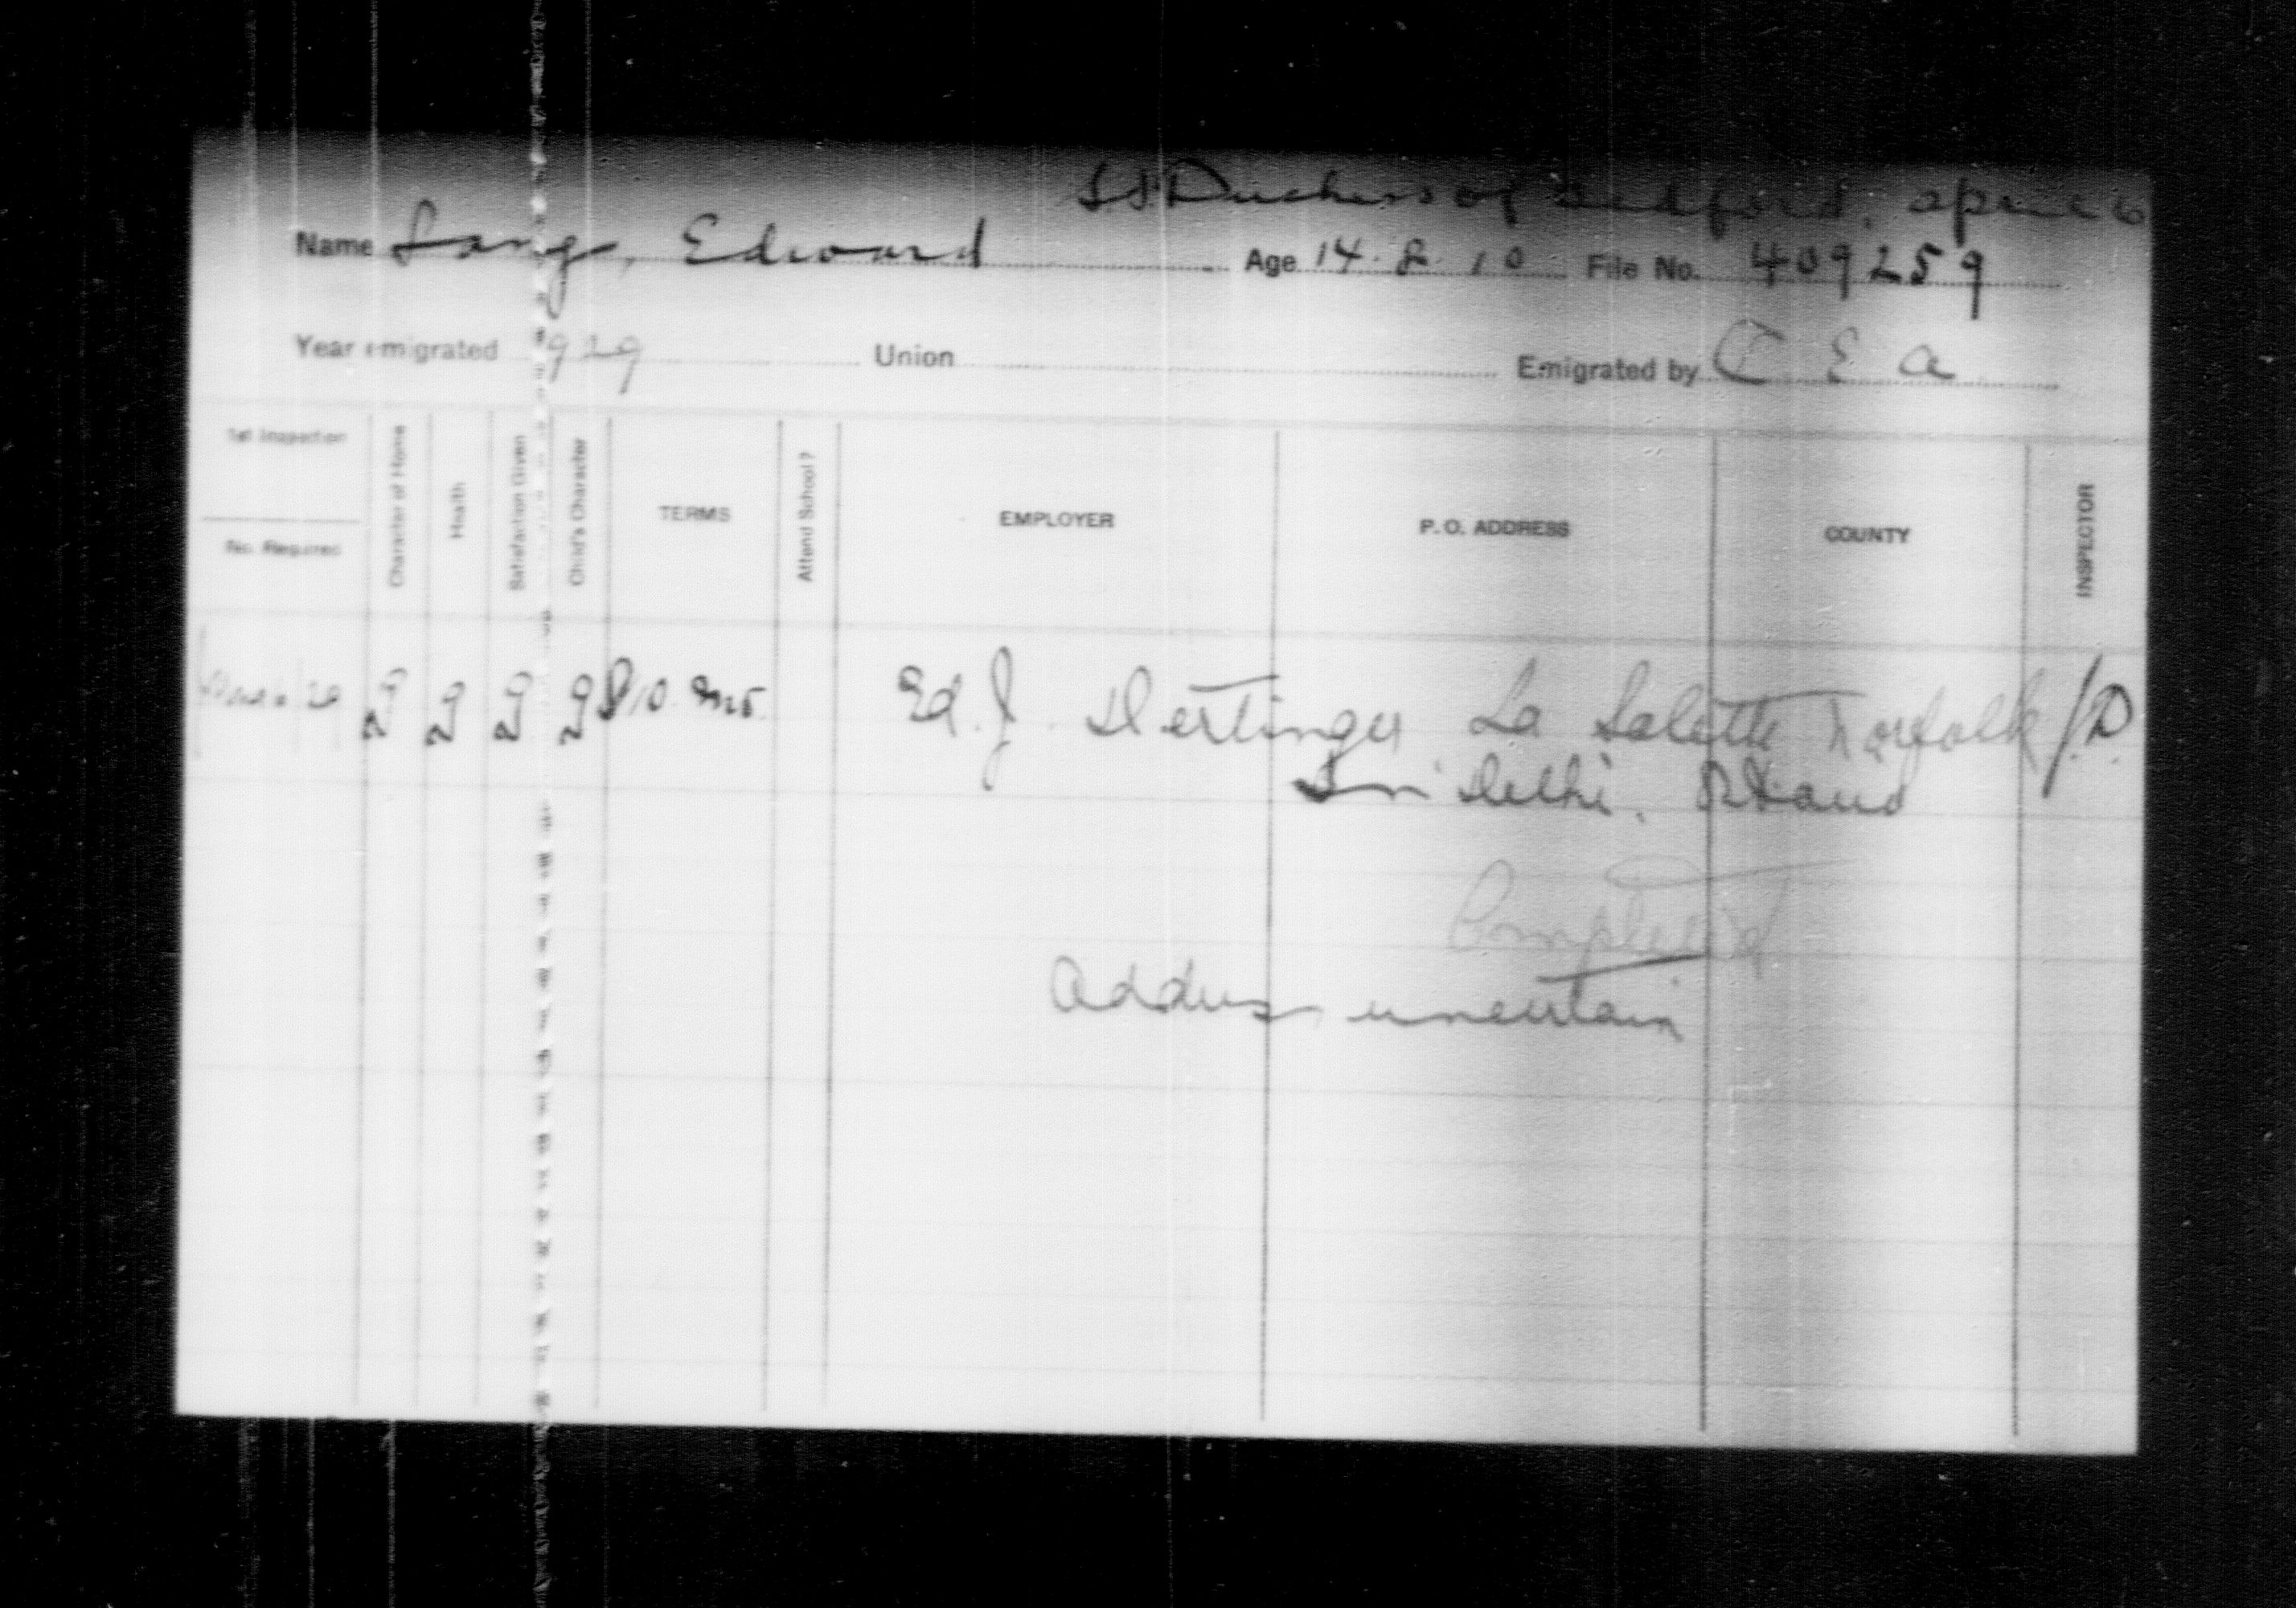 SS Duchess of Bedford, April 6
Name Lang, Edward Age 14. 2. 10 File No. 409259
Year emigrated 1929 Union Emigrated by C E A
1st Inspection
No. Required
Character of Home
Health
Satisfaction Given
Child's Character
TERMS
Attend School?
EMPLOYER
P. O. ADDRESS
COUNTY
INSPECTOR
29 g g g g $10. mo. Ed. J. Dertinger La Salette Norfolk
Delhi.
Completed
Address uncertain